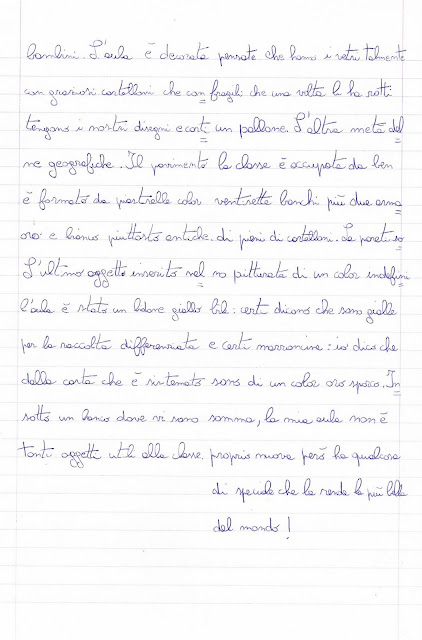 bambini. L'aula è decorata
con graziosi cartelloni che con
tengono i nostri disegni e carti
ne geografiche. Il pavimento
è formato da piastrelle color
oro e bianco piuttosto antiche.
L'ultimo oggetto inserito nel
l'aula è stato un bidone giallo
per la raccolta differenziata
della carta che è sistemato
sotto un banco dove vi sono
tanti oggetti utili alla classe.
pensate che hanno i vetri talmente
fragili che una volta li ha rotti
un pallone. L'altra metà del
la classe è occupata da ben
ventisette banchi più due arma
di pieni di cartelloni. Le pareti so
no pitturata di un color indefini
bile: certi dicono che sono gialle
e certi marroncine: io dico che
sono di un color oro sporco. In
somma, la mia aula non è
proprio nuova però ha qualcosa
di speciale che la rende la più bella
del mondo!